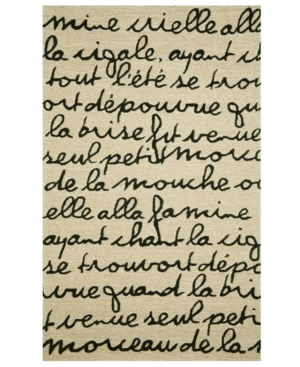 mine crielle alla
la cigale, ayant ch
tout l'été se trou
ort dépouvue qu
la brise fut venue
seul petit morcea
de la mouche ou
elle alla famine
ayant chant la cig
se trouvort dépo
vue quand la bri
t venue seul peti
morceau de la m